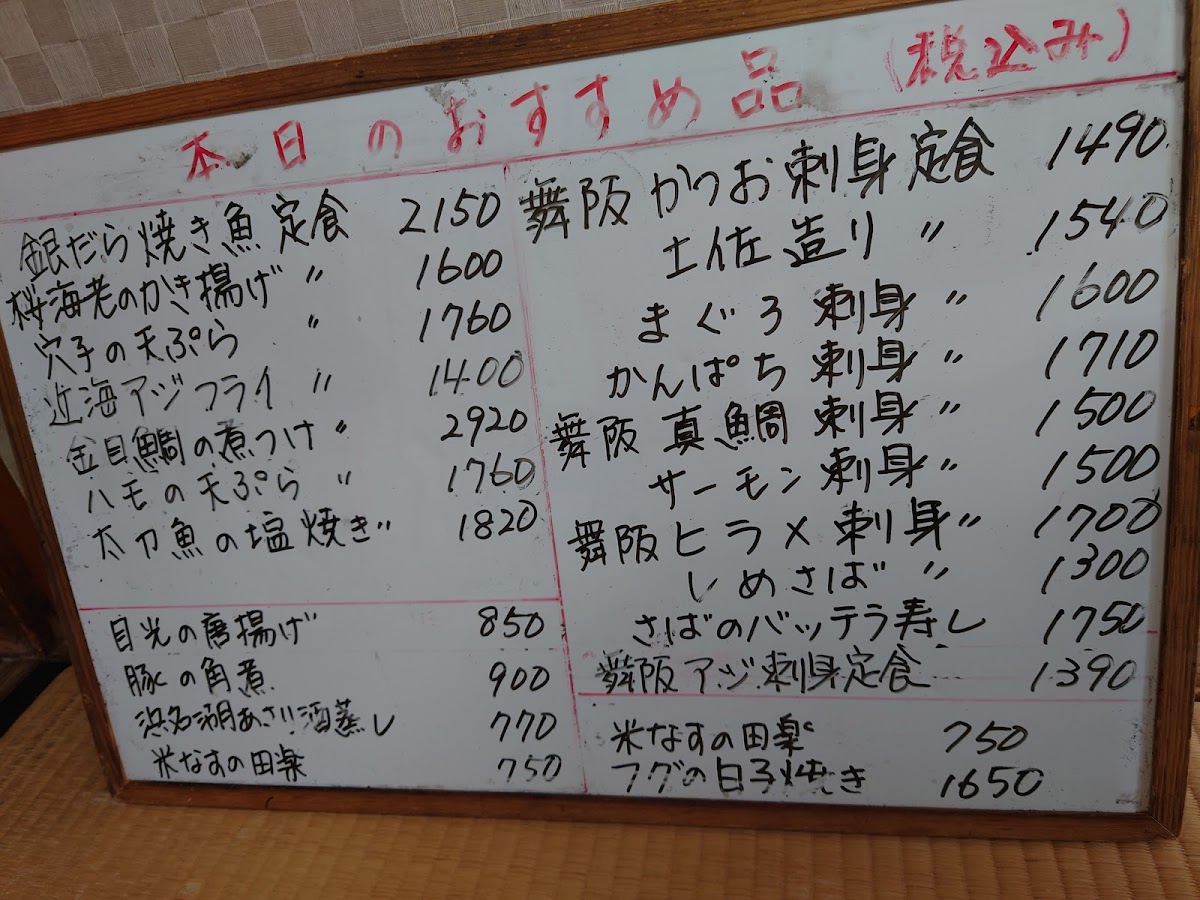 本日のおすすめ品 (税込み)
銀だら焼き魚定食 2150
桜海老のかき揚げ 〃 1600
穴子の天ぷら 〃 1760
近海アジフライ 〃 1400
金目鯛の煮つけ 〃 2920
ハモの天ぷら 〃 1760
太刀魚の塩焼き 〃 1820
目光の唐揚げ 850
豚の角煮 900
浜名湖あさり酒蒸し 770
米なすの田楽 750
舞阪かつお刺身定食 1490
土佐造り 〃 1540
まぐろ刺身 〃 1600
かんぱち刺身 〃 1710
舞阪真鯛刺身 〃 1500
サーモン刺身 〃 1500
舞阪ヒラメ刺身 〃 1700
しめさば 〃 1300
さばのバッテラ寿し 1750
舞阪アジ刺身定食 1390
米なすの田楽 750
フグの白子焼き 1650